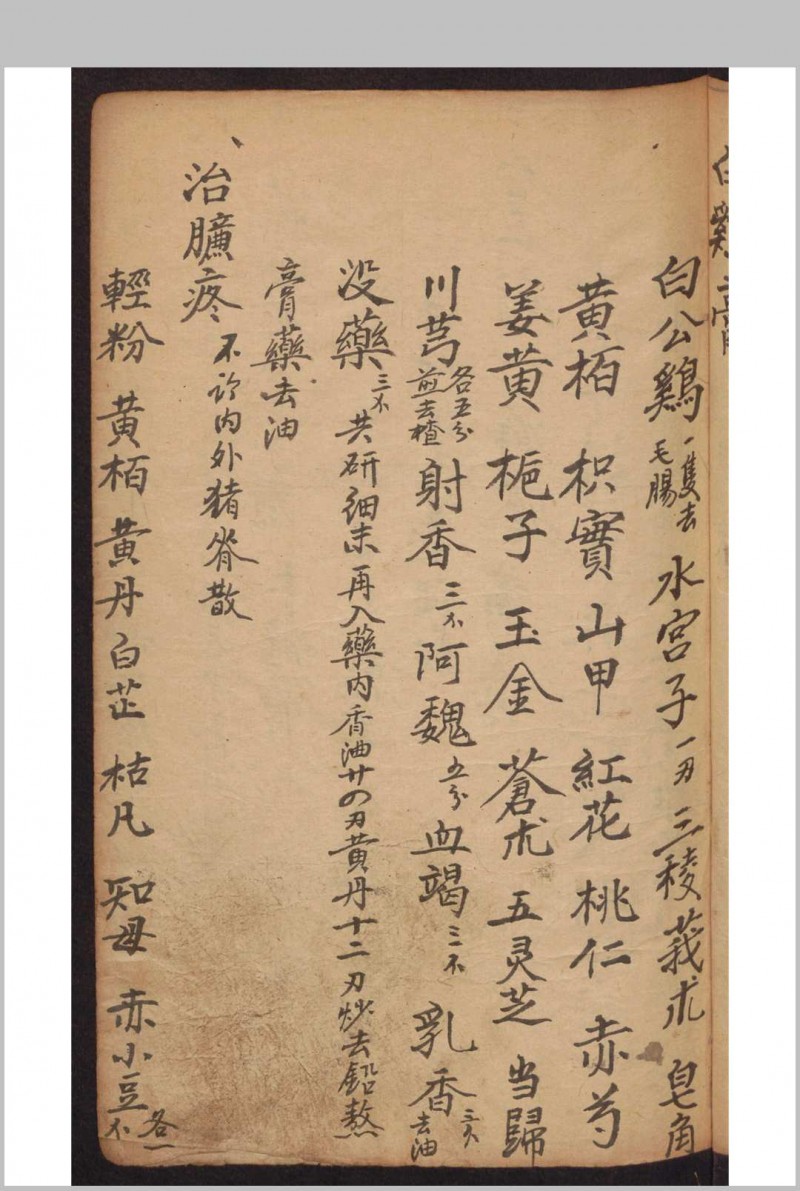 白公鷄一隻去毛腸 水宮子一刃 三稜 莪朮 皂角
黄栢 枳實 山甲 紅花 桃仁 赤芍
姜黄 栀子 玉金 蒼朮 五灵芝 当歸
川芎各五分煎去楂 射香三 阿魏五分 血竭三 乳香三去油
没藥三 共研細末再入藥内香油廿四刃黄丹十二刃炒去鉛熬
膏藥去油
治臁疼 不論内外猪脊散
輕粉 黄栢 黄丹 白芷 枯凡 知母 赤小豆各一